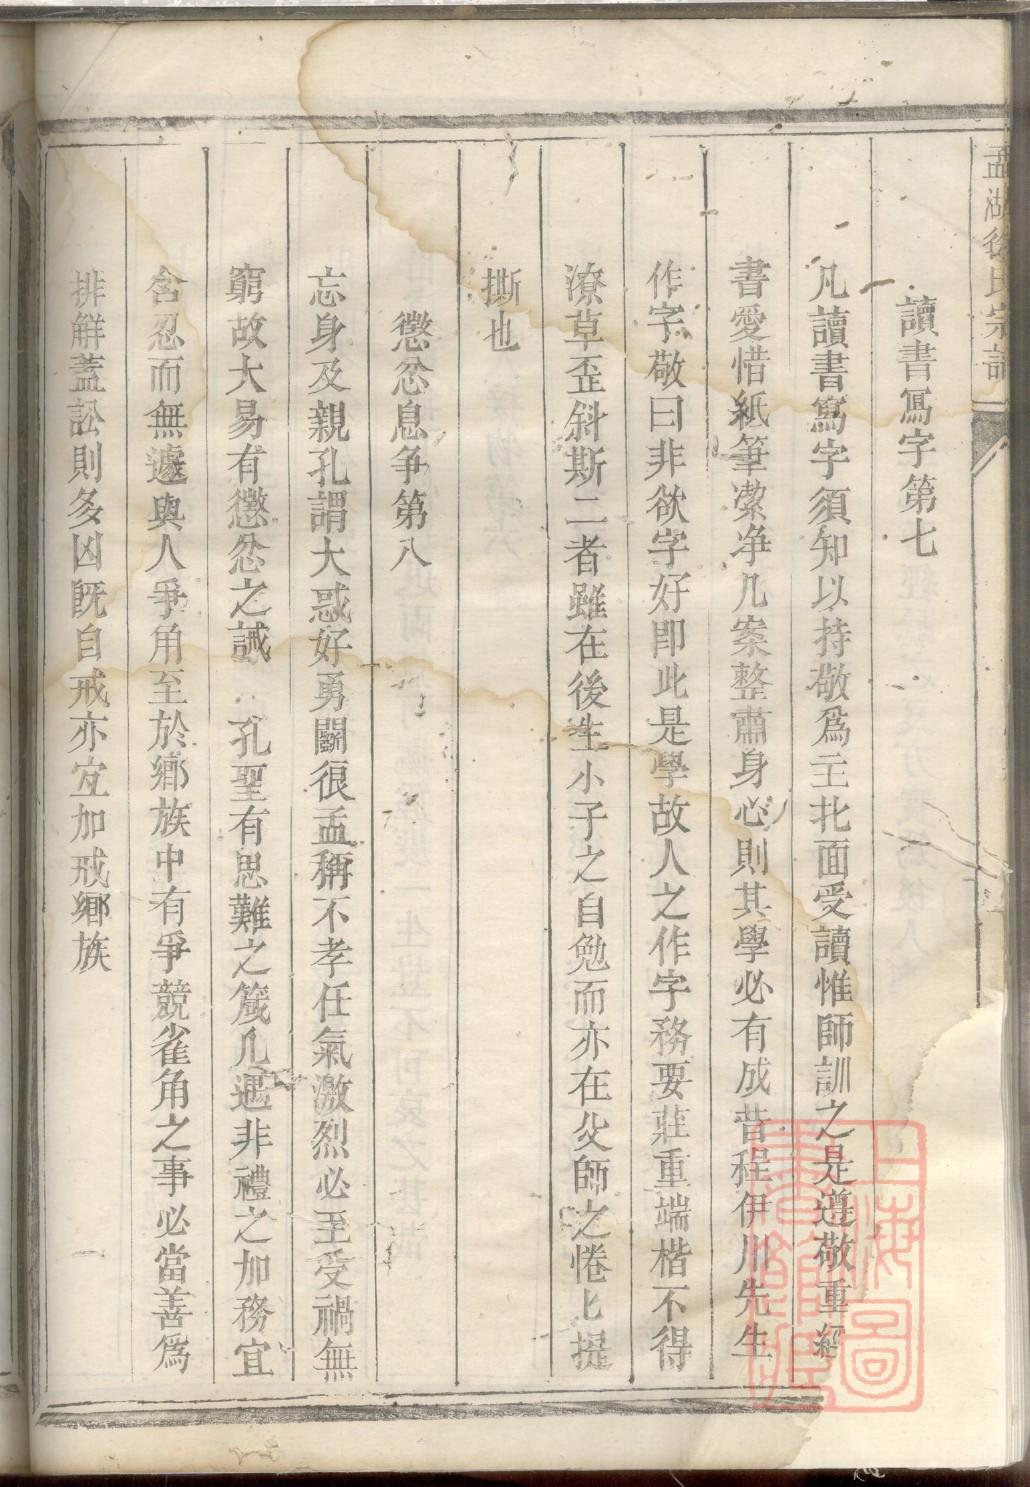 孟湖徐氏宗譜
讀書寫字第七
凡讀書寫字須知以持敬爲主北面受讀惟師訓之是遵敬重經
書愛惜紙筆潔净几案整肅身心則其學必有成昔程伊川先生
作字敬曰非欲字好即此是學故人之作字務要莊重端楷不得
潦草歪斜斯二者雖在後生小子之自勉而亦在父師之惓匕提
撕也
懲忿息争第八
忘身及親孔謂大惑好勇鬭很孟稱不孝任氣激烈必至受禍無
窮故大易有懲忿之誡 孔聖有思難之箴凡遇非禮之加務宜
含忍而無遽與人爭角至於鄉族中有爭競雀角之事必當善爲
排解蓋訟則多凶既自戒亦宜加戒鄉族
上海圖書館藏